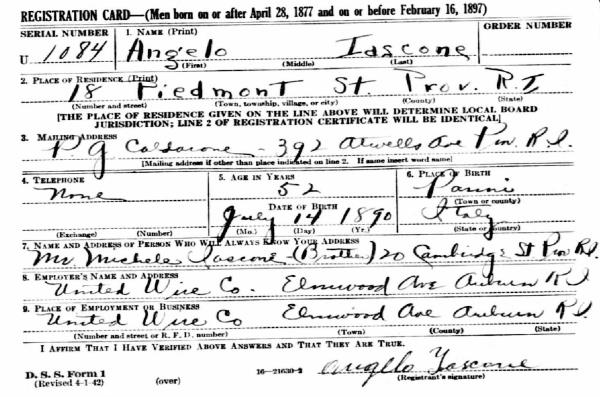 REGISTRATION CARD—(Men born on or after April 28, 1877 and on or before February 16, 1897)
SERIAL NUMBER 1. NAME (Print) ORDER NUMBER
U 1084 Angelo Iascone
(First) (Middle) (Last)
2. PLACE OF RESIDENCE (Print)
18 Piedmont St. Prov. R.I
(Number and street) (Town, township, village, or city) (County) (State)
[THE PLACE OF RESIDENCE GIVEN ON THE LINE ABOVE WILL DETERMINE LOCAL BOARD
JURISDICTION; LINE 2 OF REGISTRATION CERTIFICATE WILL BE IDENTICAL]
3. MAILING ADDRESS
392 Atwells Ave Prov. R.I.
[Mailing address if other than place indicated on line 2. If same insert word same]
4. TELEPHONE 5. AGE IN YEARS 6. PLACE OF BIRTH
None 52 Panni
(Town or county)
DATE OF BIRTH
July 14 1890 Italy
(Exchange) (Number) (Mo.) (Day) (Yr.) (State or country)
7. NAME AND ADDRESS OF PERSON WHO WILL ALWAYS KNOW YOUR ADDRESS
Mr Michele Iascone-(Brother) 20 Cambridge St Prov R.I
8. EMPLOYER'S NAME AND ADDRESS
United Wire Co. Elmwood Ave Auburn R I
9. PLACE OF EMPLOYMENT OR BUSINESS
United Wire Co Elmwood Ave Auburn R I
(Number and street or R. F. D. number) (Town) (County) (State)
I AFFIRM THAT I HAVE VERIFIED ABOVE ANSWERS AND THAT THEY ARE TRUE.
D. S. S. Form 1
(Revised 4-1-42) (over) 16—21630-2 Angelo Iascone
(Registrant's signature)